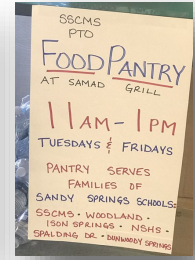 SSCMS
PTO
FOOD PANTRY
AT SAMAD GRILL
11AM - 1PM
TUESDAYS & FRIDAYS
PANTRY SERVES
FAMILIES OF
SANDY SPRINGS SCHOOLS:
SSCMS · WOODLAND ·
ISON SPRINGS · NSHS ·
SPALDING DR · DUNWOODY SPRINGS